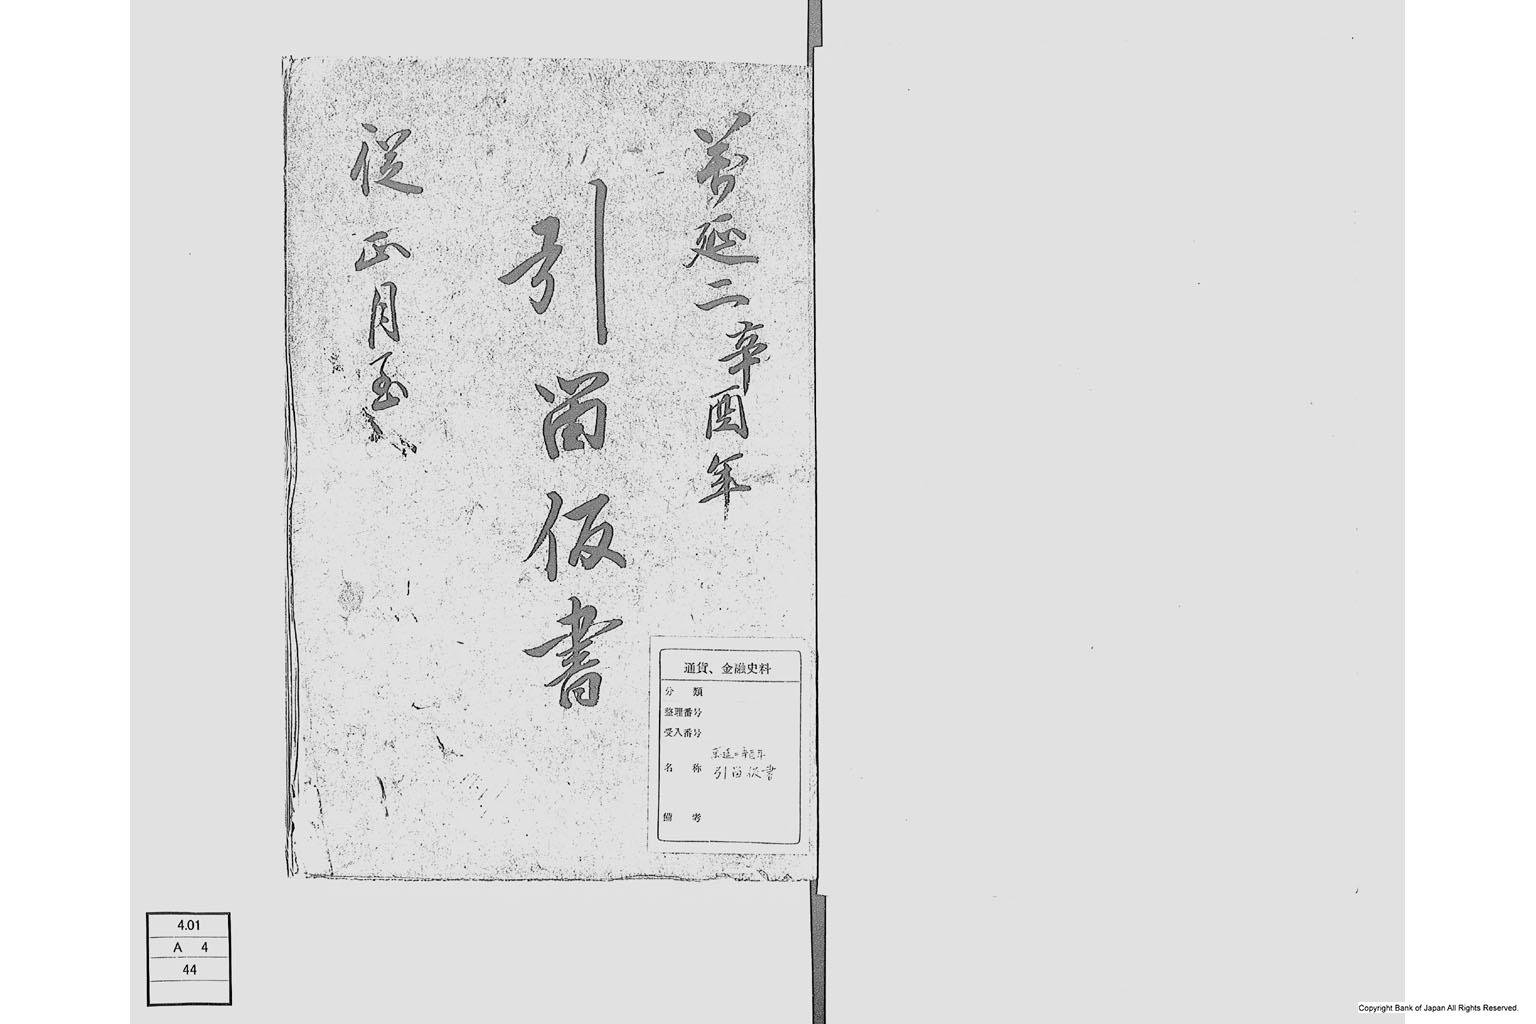 萬延二辛酉年
引留仮書
従正月至
通貨、金融史料
分 類
整理番号
受入番号
名 称 萬延二辛酉年
引留仮書
備 考
4.01
A 4
44
Copyright Bank of Japan All Rights Reserved.